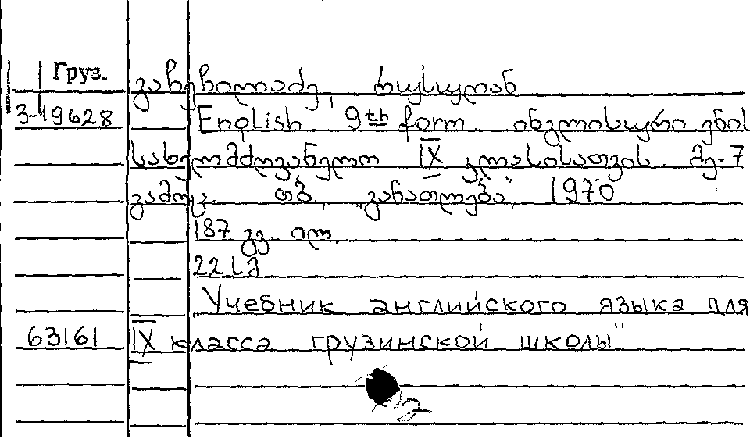 Груз. გაჩეჩილაძე, რუსუდან
3-19628 English 9th form. ინგლისური ენის
სახელმძღვანელო IX კლასისათვის. მე-7
გამოც. თბ., "განათლება", 1970
187 გვ. ილ.
22 L3
Учебник английского языка для
63161 IX класса грузинской школы"